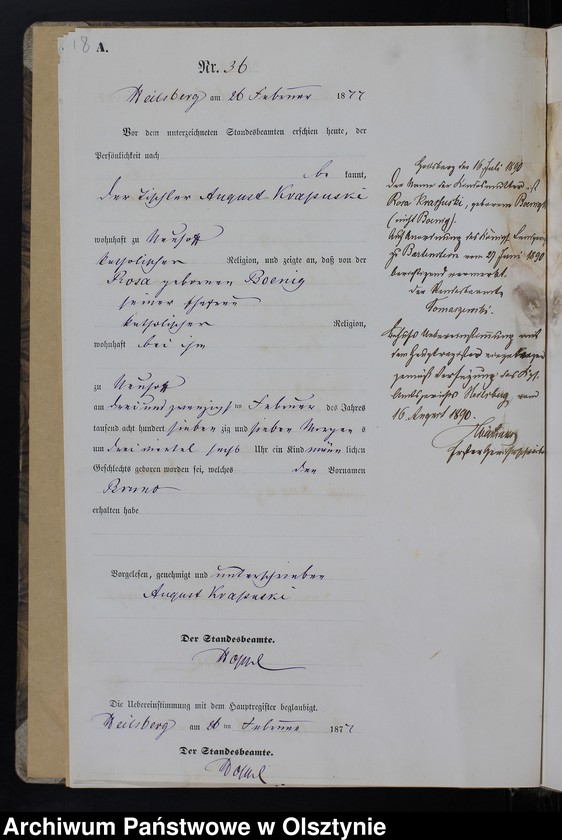 18 A.
Nr. 36
Heilsberg am 26 Februar 1877
Vor dem unterzeichneten Standesbeamten erschien heute, der
Persönlichkeit nach
be kannt,
der Tischler August Krapuski
wohnhaft zu Neuhoff
katholischer Religion, und zeigte an, daß von der
Rosa geborenen Boenig
seiner Ehefrau
katholischer Religion,
wohnhaft bei ihm
zu Neuhoff
am drei und zwanzigst en Februar des Jahres
tausend acht hundert sieben zig und sieben Morgen s
um drei viertel sechs Uhr ein Kind männ lichen
Geschlechts geboren worden sei, welches den Vornamen
Bruno
erhalten habe
Vorgelesen, genehmigt und unterschrieben
August Krapuski
Der Standesbeamte.
Die Uebereinstimmung mit dem Hauptregister beglaubigt.
Heilsberg am 26 ten Februar 1877
Der Standesbeamte.
Heilsberg den 16 Juli 1890
Der Name der Kindesmutter ist
Rosa Krapuski, geborene
(nicht Boenig).
Auf Anordnung des Königl. Landgerichts
zu Bartenstein vom 27 Juni 1890
berichtigend vermerkt.
Der Standesbeamte
Tomaszewski.
Behufs Uebereinstimmung mit
dem Hauptregister eingetragen
gemäß Verfügung des Kgl.
Amtsgerichts Heilsberg vom
16 August 1890.
Archiwum Państwowe w Olsztynie